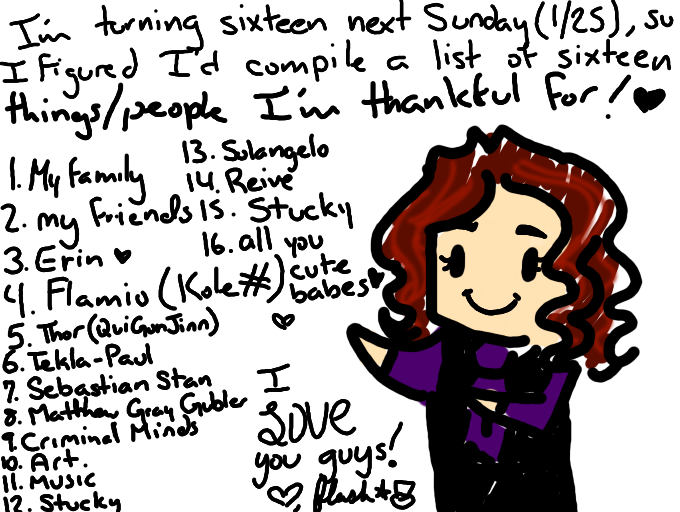 I'm turning sixteen next Sunday (1/25), so
I figured I'd compile a list of sixteen
things/people I'm thankful for! ♥
1. My Family
2. my friends
3. Erin ♥
4. Flamio (Kole#)
5. Thor (QuiGunJinn)
6. Tekla-Paul
7. Sebastian Stan
8. Matthew Gray Gubler
9. Criminal Minds
10. Art.
11. Music
12. Stucky
13. Solangelo
14. Reive
15. Stucky
16. all you
cute
babes ♥
♡
I
LOVE
you guys!
♡ flash★